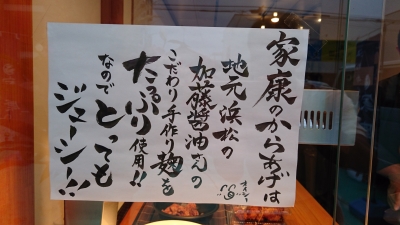 家康のからあげは
地元浜松の
加藤醤油さんの
こだわり手作り麹を
たっぷり使用!!
なので とっても
ジューシー!!
オイシー